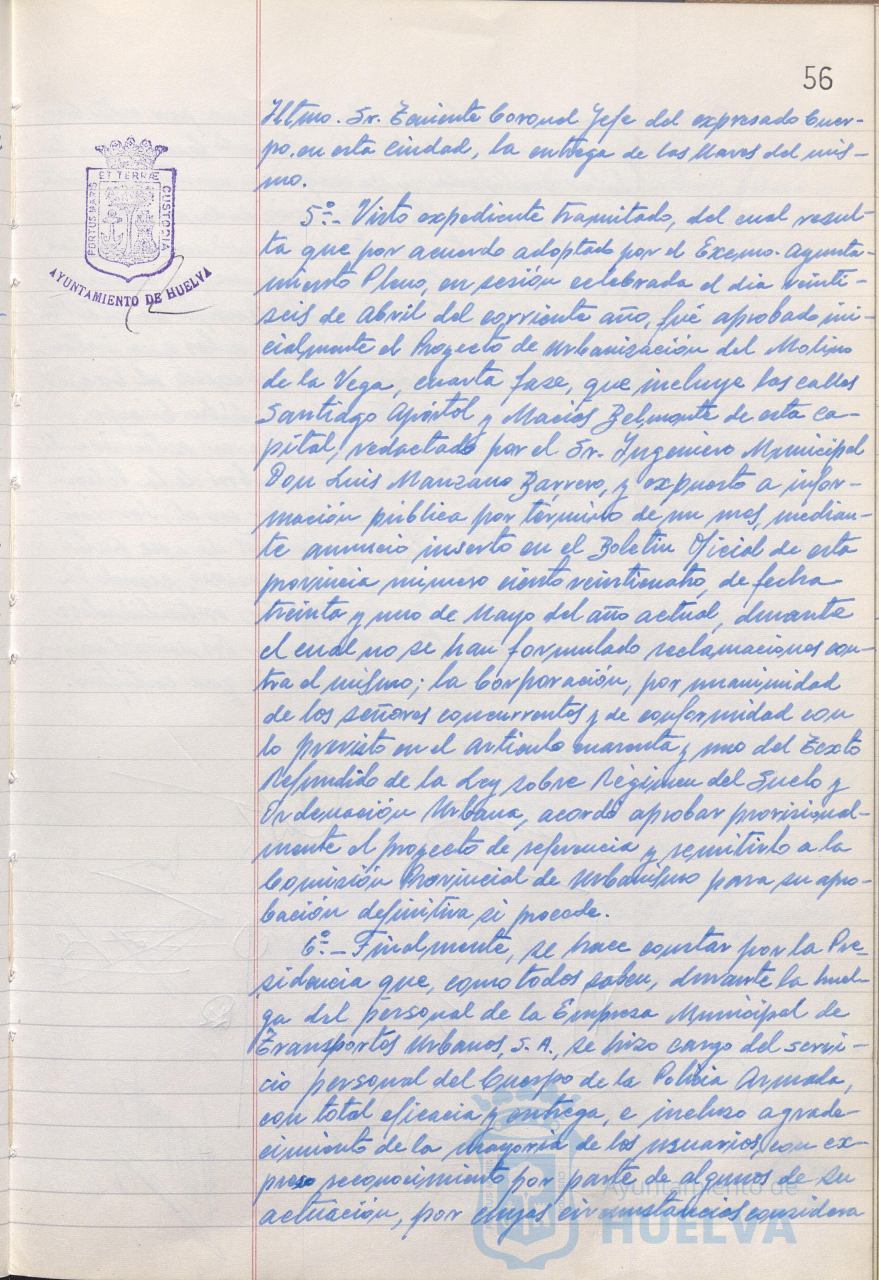 56
Iltmo. Sr. Teniente Coronel Jefe del expresado Cuer-
po, en esta ciudad, la entrega de las llaves del mis-
mo.
5º.- Visto expediente tramitado, del cual resul-
ta que por acuerdo adoptado por el Excmo. Ayunta-
miento Pleno, en sesión celebrada el dia veinti-
seis de Abril del corriente año, fué aprobado ini-
cialmente el Proyecto de Urbanización del Molino
de la Vega, cuarta fase, que incluye las calles
Santiago Apóstol y Macías Belmonte de esta ca-
pital, redactado por el Sr. Ingeniero Municipal
Don Luis Manzano Barrero, y expuesto a infor-
mación pública por término de un mes, median-
te anuncio inserto en el Boletin Oficial de esta
provincia número ciento veinticuatro, de fecha
treinta y uno de Mayo del año actual, durante
el cual no se han formulado reclamaciones con-
tra el mismo; la Corporación, por unanimidad
de los señores concurrentes y de conformidad con
lo previsto en el articulo cuarenta y uno del Texto
Refundido de la Ley sobre Régimen del Suelo y
Ordenación Urbana, acordó aprobar provisional-
mente el proyecto de referencia y remitirlo a la
Comisión Provincial de Urbanismo para su apro-
bación definitiva si procede.
6º.- Finalmente, se hace constar por la Pre-
sidencia que, como todos saben, durante la huel-
ga del personal de la Empresa Municipal de
Transportos Urbanos, S.A., se hizo cargo del servi-
cio personal del Cuerpo de la Policia Armada,
con total eficacia y entrega, e incluso agrade-
cimiento de la mayoria de los usuarios, con ex-
preso reconocimiento por parte de algunos de su
actuación, por cuyas circunstancias considera
PORTUS MARIS ET TERRÆ CUSTODIA
AYUNTAMIENTO DE HUELVA
Ayuntamiento de
HUELVA